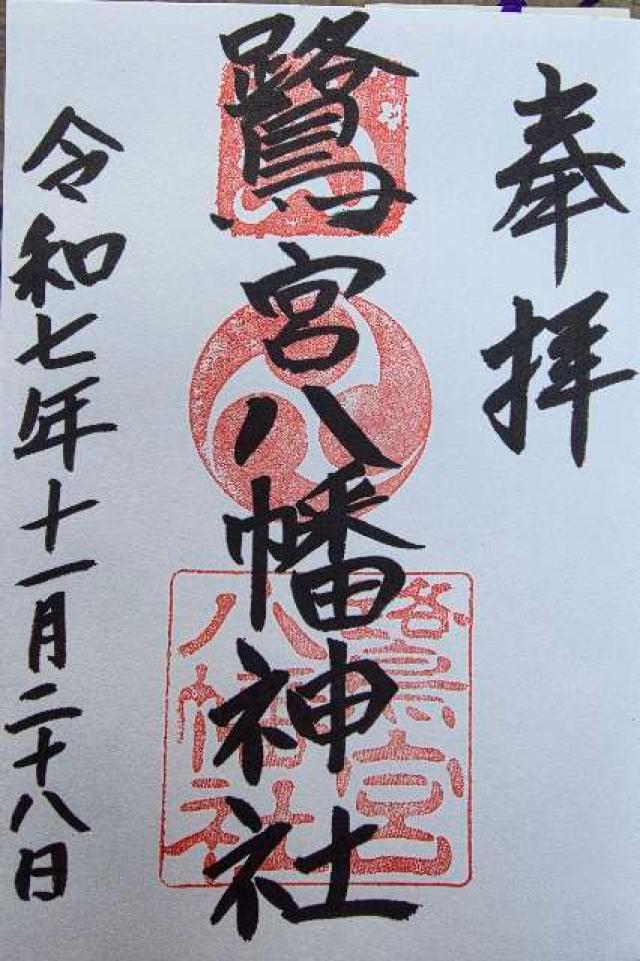 奉拝
鷺宮八幡神社
鷺宮
八幡社
令和七年十一月二十八日